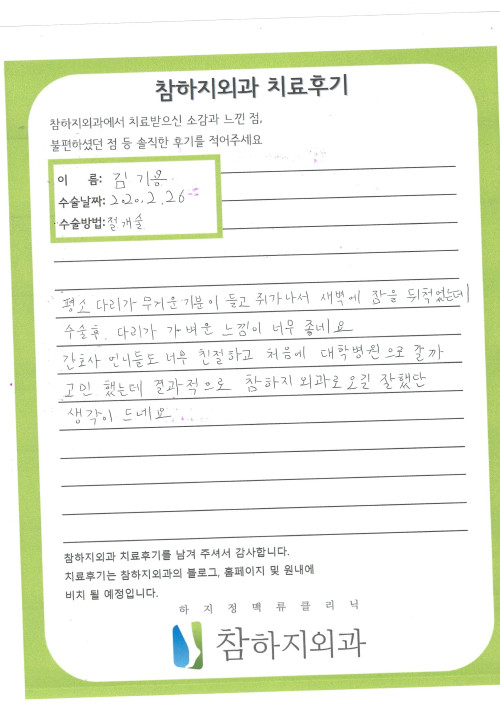 참하지외과 치료후기
참하지외과에서 치료받으신 소감과 느낀 점,
불편하셨던 점 등 솔직한 후기를 적어주세요
이 름: 김 기용
수술날짜: 2020.2.26
수술방법: 절개술
평소 다리가 무거운 기분이 들고 쥐가나서 새벽에 잠을 뒤척었는데
수술후, 다리가 가벼운 느낌이 너무 좋네요
간호사 언니들도 너무 친절하고 처음에 대학병원으로 갈까
고민 했는데 결과적으로 참하지외과로 오길 잘했단
생각이 드네요
참하지외과 치료후기를 남겨 주셔서 감사합니다.
치료후기는 참하지외과의 블로그, 홈페이지 및 원내에
비치 될 예정입니다.
하지정맥류클리닉
참하지외과